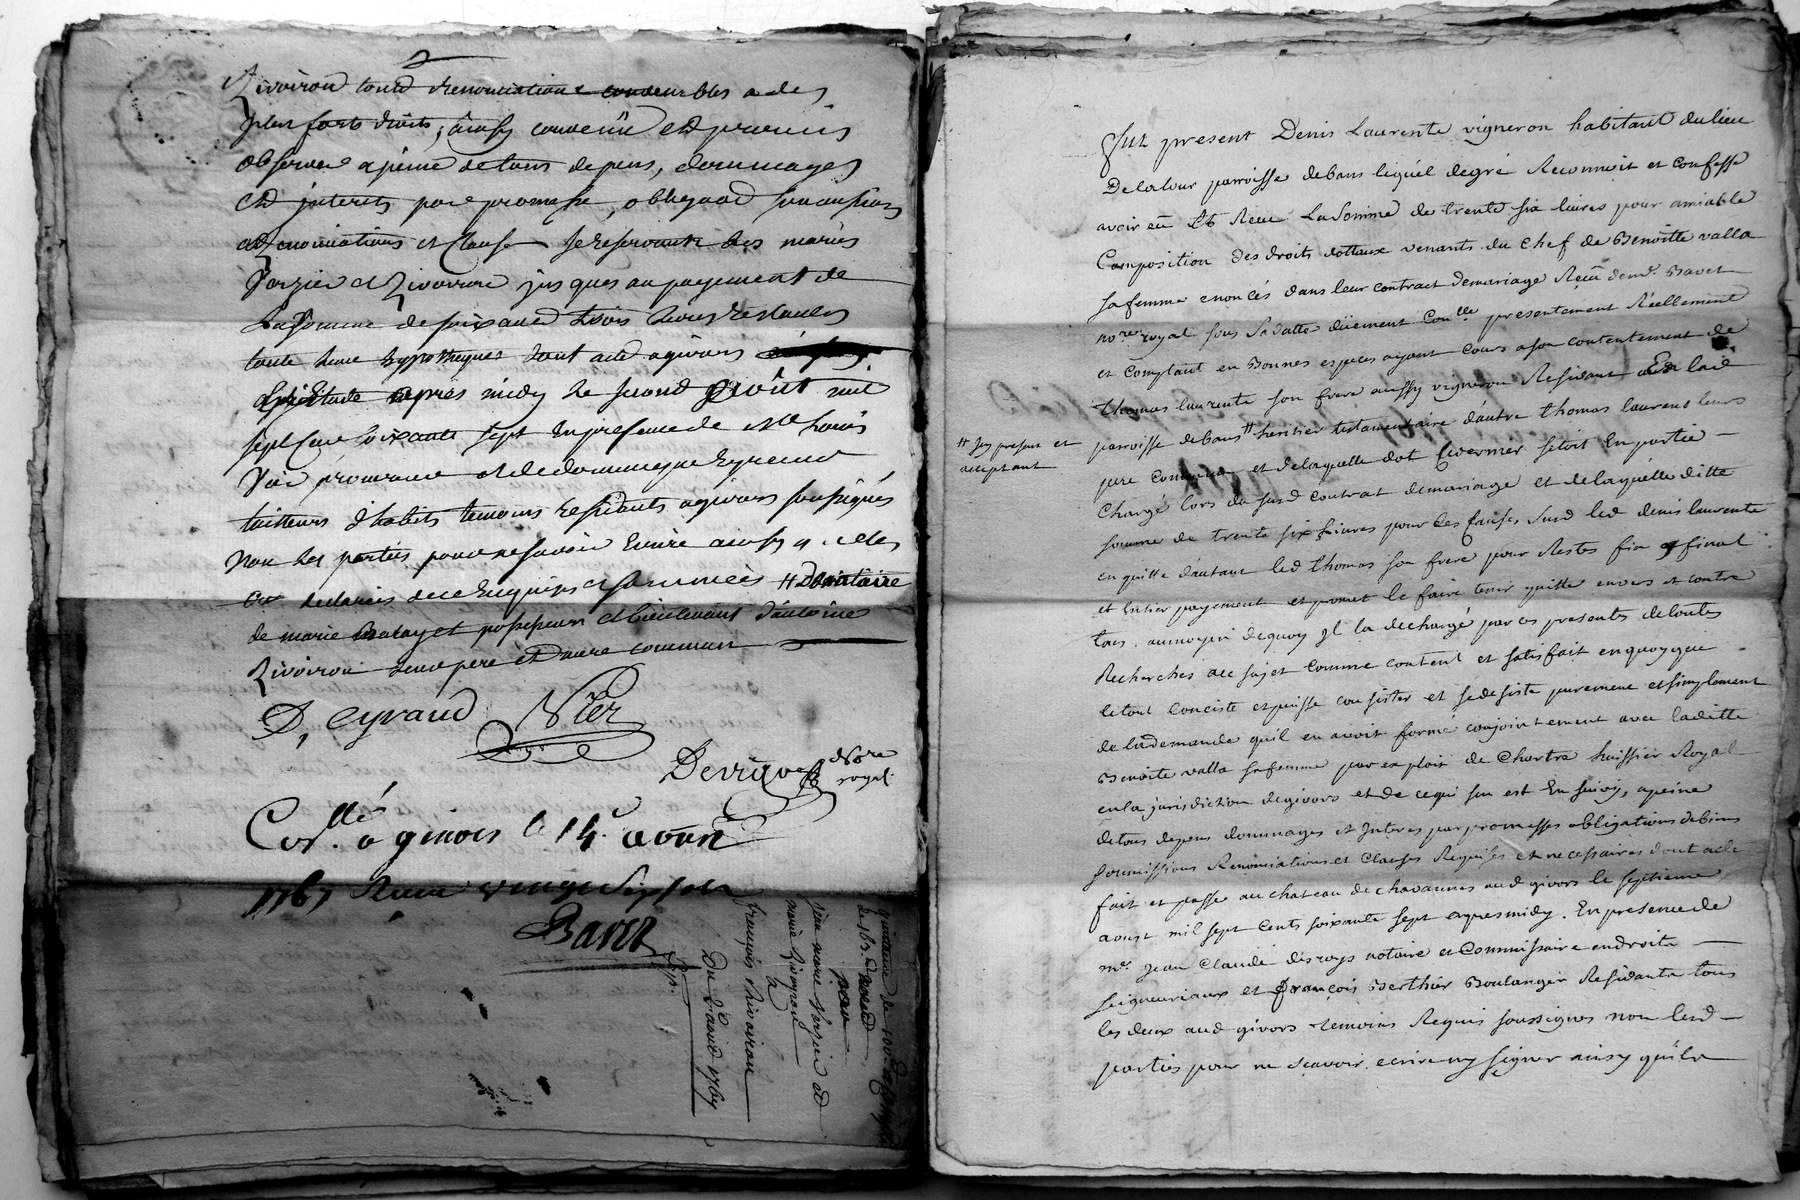 Rivoiron tous renonciations a des
plus forts droits, ainsy convenu et promis
observer a peine de tous depens, dommages
et interets par promesse, obligaon soumissions
renonciations et clauses se reservants les mariés
Verzier et Rivoiron jusques au payement de
la somme de soixante trois livres restantes
toute leur hypotheques dont acte a givors
Etude apres midy le second aoüt mil
sept cent soixante sept en presence de Me Louis
Vier procureur et de dominique Eyraud
tailleurs d'habits temoins residents a givors soussignés
non les parties pour ne savoir écrire ainsy q. elles
ont declarés de ce enquises et sommées #
de marie et possesseur et bientenant d'antoine
Rivoiron leur pere et commun
D, Eyraud Vier
Devigues Nore
royal
Conllé a givors le 14e aoust
1767 Recu vingt six sols
Baret
quittance de 100
de 163.
pour
jean marie Verzier et
marie Rivoyron
a
françois Rivoiron
Du 2e aoust 1767
Fut present Denis Laurente vigneron habitant du lieu
De la tour parroisse de bans lequél de gré Reconnoit et confesse
avoir eü et Receu La Somme de trente six livres pour amiable
Composition des droits dottaux venants du chef de Benoitte valla
sa femme enoncés dans leur contract de mariage Receü de me. Baret
nore. royal sous Sa datte düement Conlle presentement Réellement
et Comptant en Bonnes especes ayant cours a son contentement de
thomas laurente son frere aussy vigneron Residant en lad
parroisse de bans # heritier testamentaire d'autre thomas laurent leurs
# icy present et
acceptant
pere commun et de laquelle dot ce dernier s'etoit En partie
Chargé lors du susd contrat de mariage et de laquélle ditte
somme de trente six livres pour les causes susd led denis laurente
en quitte d'autant led thomas son frere pour Restes fin et final
et Entier payement et promet le faire tenir quitte envers et contre
tous, au moyen de quoy jl la dechargé par ces presentes de toutes
Recherches a ce sujet comme content et satisfait en quoy que
le tout conciste et puisse consister et se desiste purement et simplement
de la demande qu'il en avoit formé conjointement avec laditte
Benoite valla sa femme par exploit de Chartre huissier Royal
en la jurisdiction de givors et de ce qui s'en est En suivy, a peine
de tous depens dommages et Interes par promesses obligations de biens
soumissions Renonciations et clauses Requises et necessaires dont acte
fait et passe au chateau de chavannes aud givors le septieme
aoust mil sept Cents soixante sept apres midy. En presence de
me. Jean Claude desroys notaire et Commissaire en droits
seigneuriaux et françois Berthier Boulanger Residants tous
les deux aud givors temoins Requis soussignes non lesd
parties pour ne scavoir ecrire ny signer ainsy qu'ils